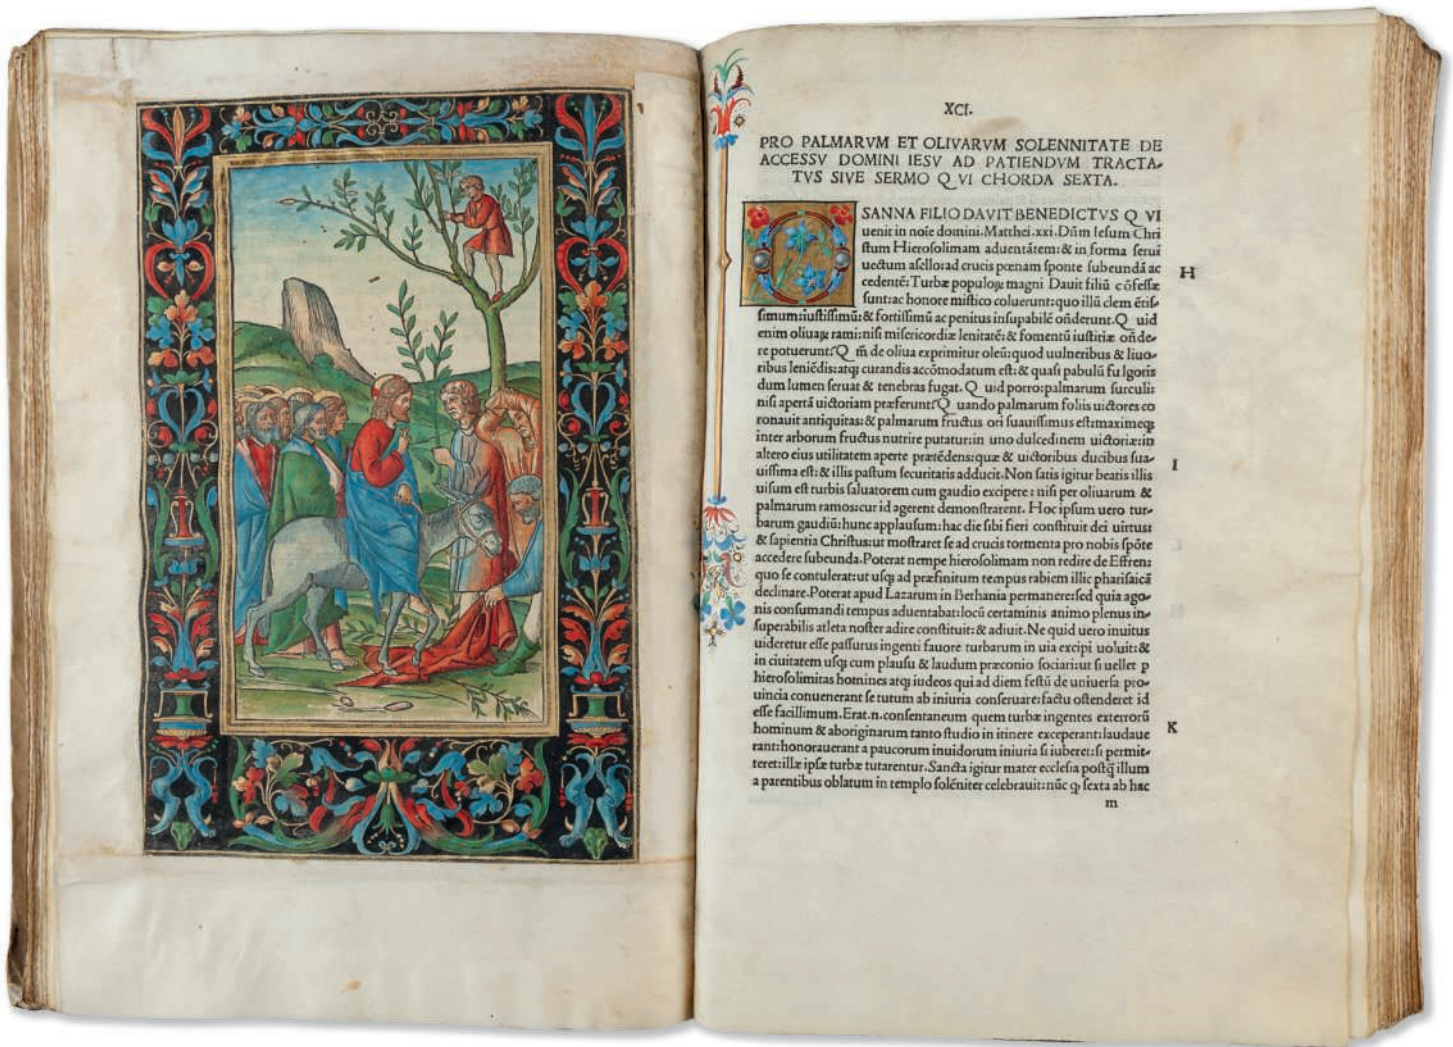 XCI.
PRO PALMARVM ET OLIVARVM SOLENNITATE DE
ACCESSV DOMINI IESV AD PATIENDVM TRACTA-
TVS SIVE SERMO QVI CHORDA SEXTA.
OSANNA FILIO DAVIT BENEDICTVS QVI
uenit in noĩe domini. Matthei.xxi. Dñm Iesum Chri
stum Hierosolimam aduentãtem: & in forma serui
uectum asello: ad crucis pœnam sponte subeundã ac
cedentẽ: Turbæ populoꝝ magni Dauit filiũ cõfessæ
H
sunt: ac honore mistico coluerunt: quo illũ clem ẽtis-
simum: iustissimũ: & fortissimũ ac penitus insupabilẽ oñderunt. Quid
enim oliuaꝝ rami: nisi misericordiæ lenitatẽ: & fomentũ iustitiæ oñde-
re potuerunt? Qm̃ de oliua exprimitur oleũ: quod uulneribus & liuo-
ribus leniẽdis: atqꝫ curandis accõmodatum est: & quasi pabulũ fulgoris
dum lumen seruat & tenebras fugat. Quid porro: palmarum surculi:
nisi apertã uictoriam præferunt? Quando palmarum foliis uictores co
ronauit antiquitas: & palmarum fructus ori suauissimus est: maximeqꝫ
inter arborum fructus nutrire putatur: in uno dulcedinem uictoriæ: in
altero eius utilitatem aperte prætẽdens: quæ & uictoribus ducibus sua-
I
uissima est: & illis pastum securitatis adducit. Non satis igitur beatis illis
uisum est turbis saluatorem cum gaudio excipere: nisi per oliuarum &
palmarum ramos: cur id agerent demonstrarent. Hoc ipsum uero tur-
barum gaudiũ: hunc applausum: hac die sibi fieri constituit dei uirtus:
& sapientia Christus: ut mostraret se ad crucis tormenta pro nobis spõte
accedere subeunda. Poterat nempe hierosolimam non redire de Effren:
quo se contulerat: ut usqꝫ ad præfinitum tempus rabiem illic pharisaicã
declinare. Poterat apud Lazarum in Bethania permanere: sed quia ago-
nis consumandi tempus aduentabat: locũ certaminis animo plenus in-
superabilis atleta noster adire constituit: & adiuit. Ne quid uero inuitus
uideretur esse passurus ingenti fauore turbarum in uia excipi uoluit: &
in ciuitatem usqꝫ cum plausu & laudum præconio sociari: ut si uellet p
hierosolimitas homines atqꝫ iudeos qui ad diem festũ de uniuersa pro-
uincia conuenerant se tutum ab iniuria conseruare: factu ostenderet id
esse facillimum. Erat.n.consentaneum quem turbæ ingentes exterrorũ
hominum & aboriginarum tanto studio in itinere exceperant: laudaue
K
rant: honorauerant a paucorum inuidorum iniuria si iuberet: si permit-
teret: illæ ipsæ turbæ tutarentur. Sancta igitur mater ecclesia postq̃ illum
a parentibus oblatum in templo solẽniter celebrauit: nũc ꝙ sexta ab hac
m